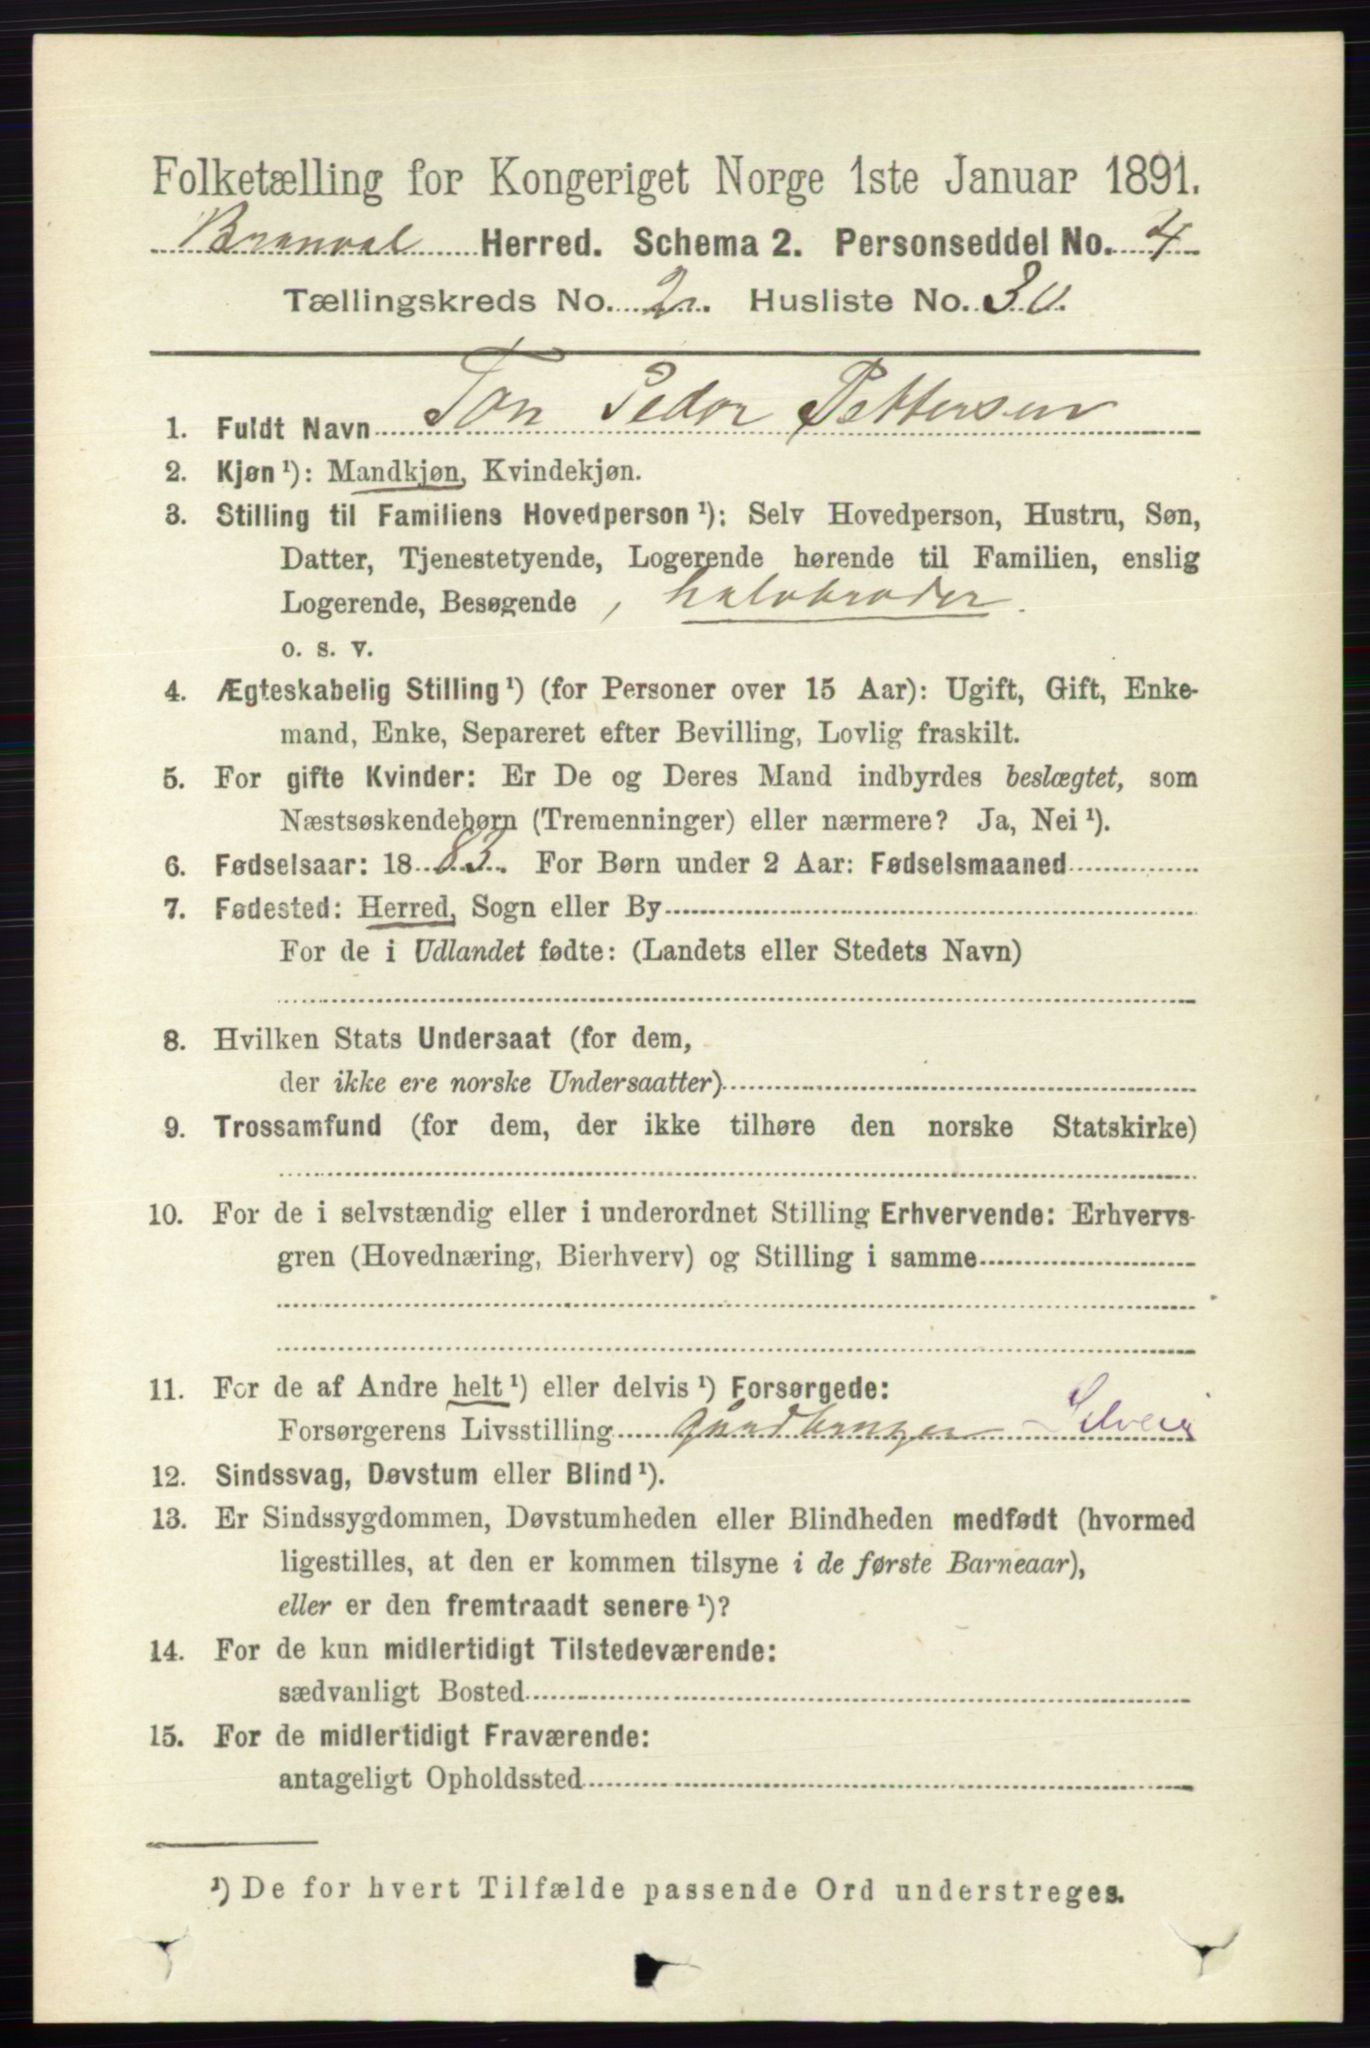 Folketælling for Kongeriget Norge 1ste Januar 1891.
Branval Herred. Schema 2. Personseddel No. 4
Tællingskreds No. 2. Husliste No. 30.
1. Fuldt Navn Ton Pedor Pettersen
2. Kjøn¹): Mandkjøn, Kvindekjøn.
3. Stilling til Familiens Hovedperson¹): Selv Hovedperson, Hustru, Søn,
Datter, Tjenestetyende, Logerende hørende til Familien, enslig
Logerende, Besøgende , halvbroder.
o. s. v.
4. Ægteskabelig Stilling¹) (for Personer over 15 Aar): Ugift, Gift, Enke-
mand, Enke, Separeret efter Bevilling, Lovlig fraskilt.
5. For gifte Kvinder: Er De og Deres Mand indbyrdes beslægtet, som
Næstsøskendebørn (Tremenninger) eller nærmere? Ja, Nei¹).
6. Fødselsaar: 1883. For Børn under 2 Aar: Fødselsmaaned
7. Fødested: Herred, Sogn eller By
For de i Udlandet fødte: (Landets eller Stedets Navn)
8. Hvilken Stats Undersaat (for dem,
der ikke ere norske Undersaatter)
9. Trossamfund (for dem, der ikke tilhøre den norske Statskirke)
10. For de i selvstændig eller i underordnet Stilling Erhvervende: Erhvervs-
gren (Hovednæring, Bierhverv) og Stilling i samme
11. For de af Andre helt¹) eller delvis¹) Forsørgede:
Forsørgerens Livsstilling Gaardbruger Selveier
12. Sindssvag, Døvstum eller Blind¹).
13. Er Sindssygdommen, Døvstumheden eller Blindheden medfødt (hvormed
ligestilles, at den er kommen tilsyne i de første Barneaar),
eller er den fremtraadt senere¹)?
14. For de kun midlertidigt Tilstedeværende:
sædvanligt Bosted
15. For de midlertidigt Fraværende:
antageligt Opholdssted
¹) De for hvert Tilfælde passende Ord understreges.